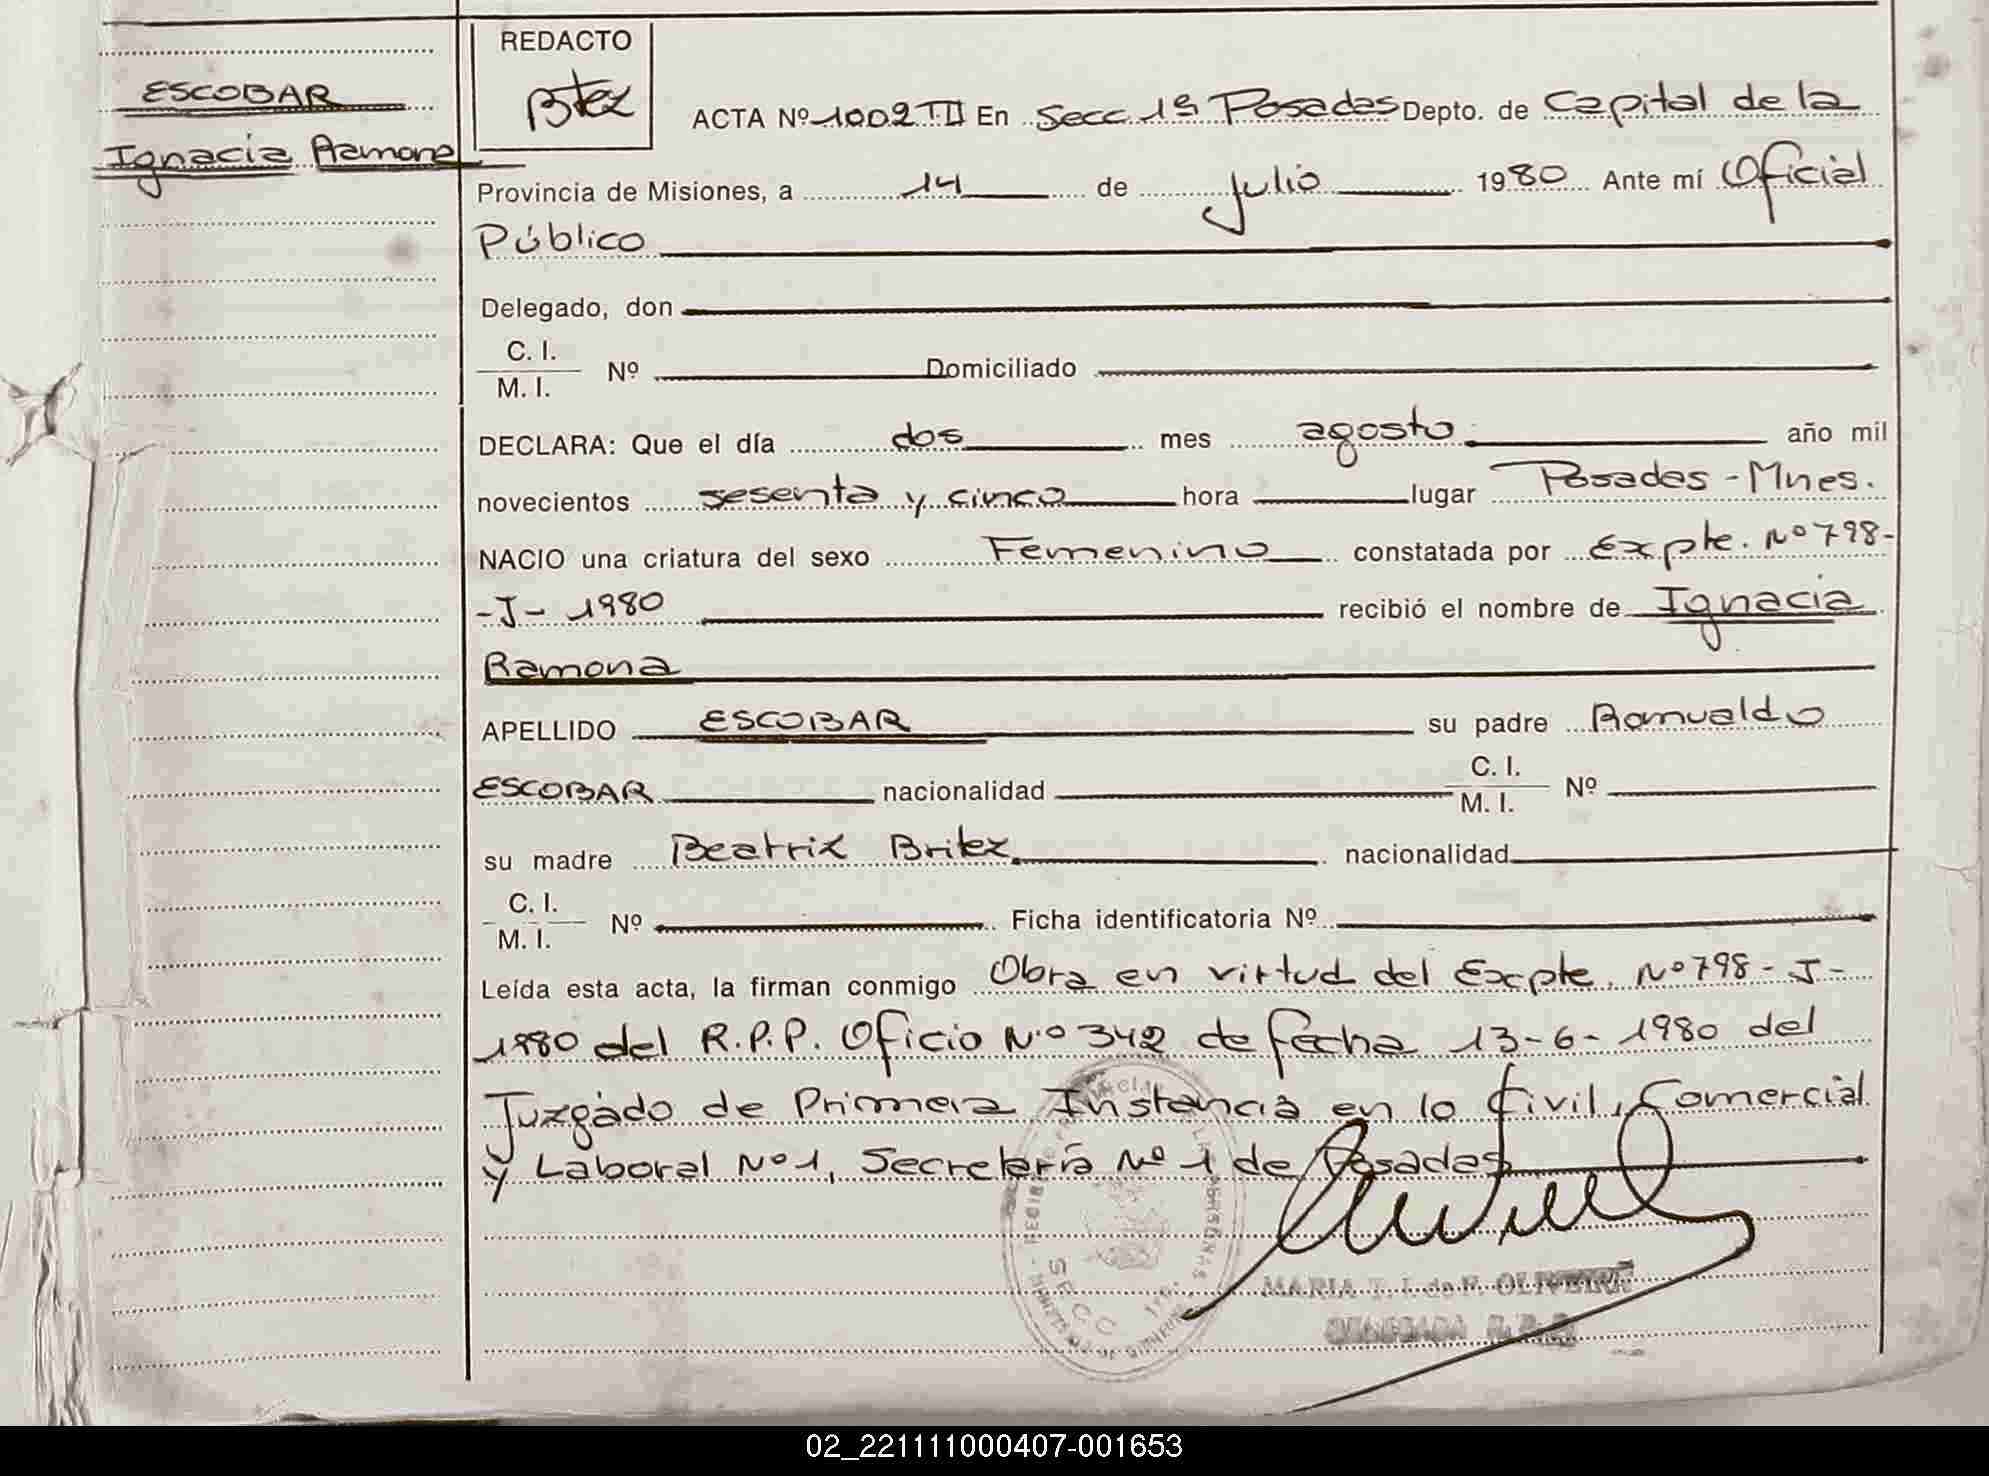 ESCOBAR
Ignacia Ramona
REDACTO
Btez
ACTA Nº 1002 TII En Secc 1ª Posadas Depto. de Capital de la
Provincia de Misiones, a 14 de julio 1980 Ante mí Oficial
Público
Delegado, don
C. I.
M. I. Nº Domiciliado
DECLARA: Que el día dos mes agosto año mil
novecientos sesenta y cinco hora lugar Posadas - Mnes.
NACIO una criatura del sexo Femenino constatada por Expte. Nº 798-
-J- 1980 recibió el nombre de Ignacia
Ramona
APELLIDO ESCOBAR su padre Romualdo
ESCOBAR nacionalidad C. I. M. I. Nº
su madre Beatriz Britez nacionalidad
C. I.
M. I. Nº Ficha identificatoria Nº
Leída esta acta, la firman conmigo Obra en virtud del Expte. Nº 798 - J -
1980 del R.P.P. Oficio Nº 342 de fecha 13-6-1980 del
Juzgado de Primera Instancia en lo Civil, Comercial
y Laboral Nº 1, Secretaría Nº 1 de Posadas
SECC 1ra.
MARIA T. I. de F. OLIVEIRA
DELEGADA
02_221111000407-001653